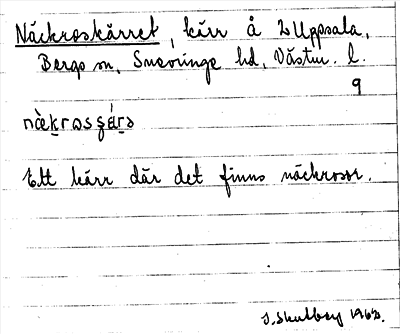 Näckroskärret, kärr å L Uppsala,
Bergs sn, Snevringe hd, Västm. l.
9
nὰk̠rωsʂɛ́r̠ə
Ett kärr där det finns näckrosor.
S. Skullbeg 1963.